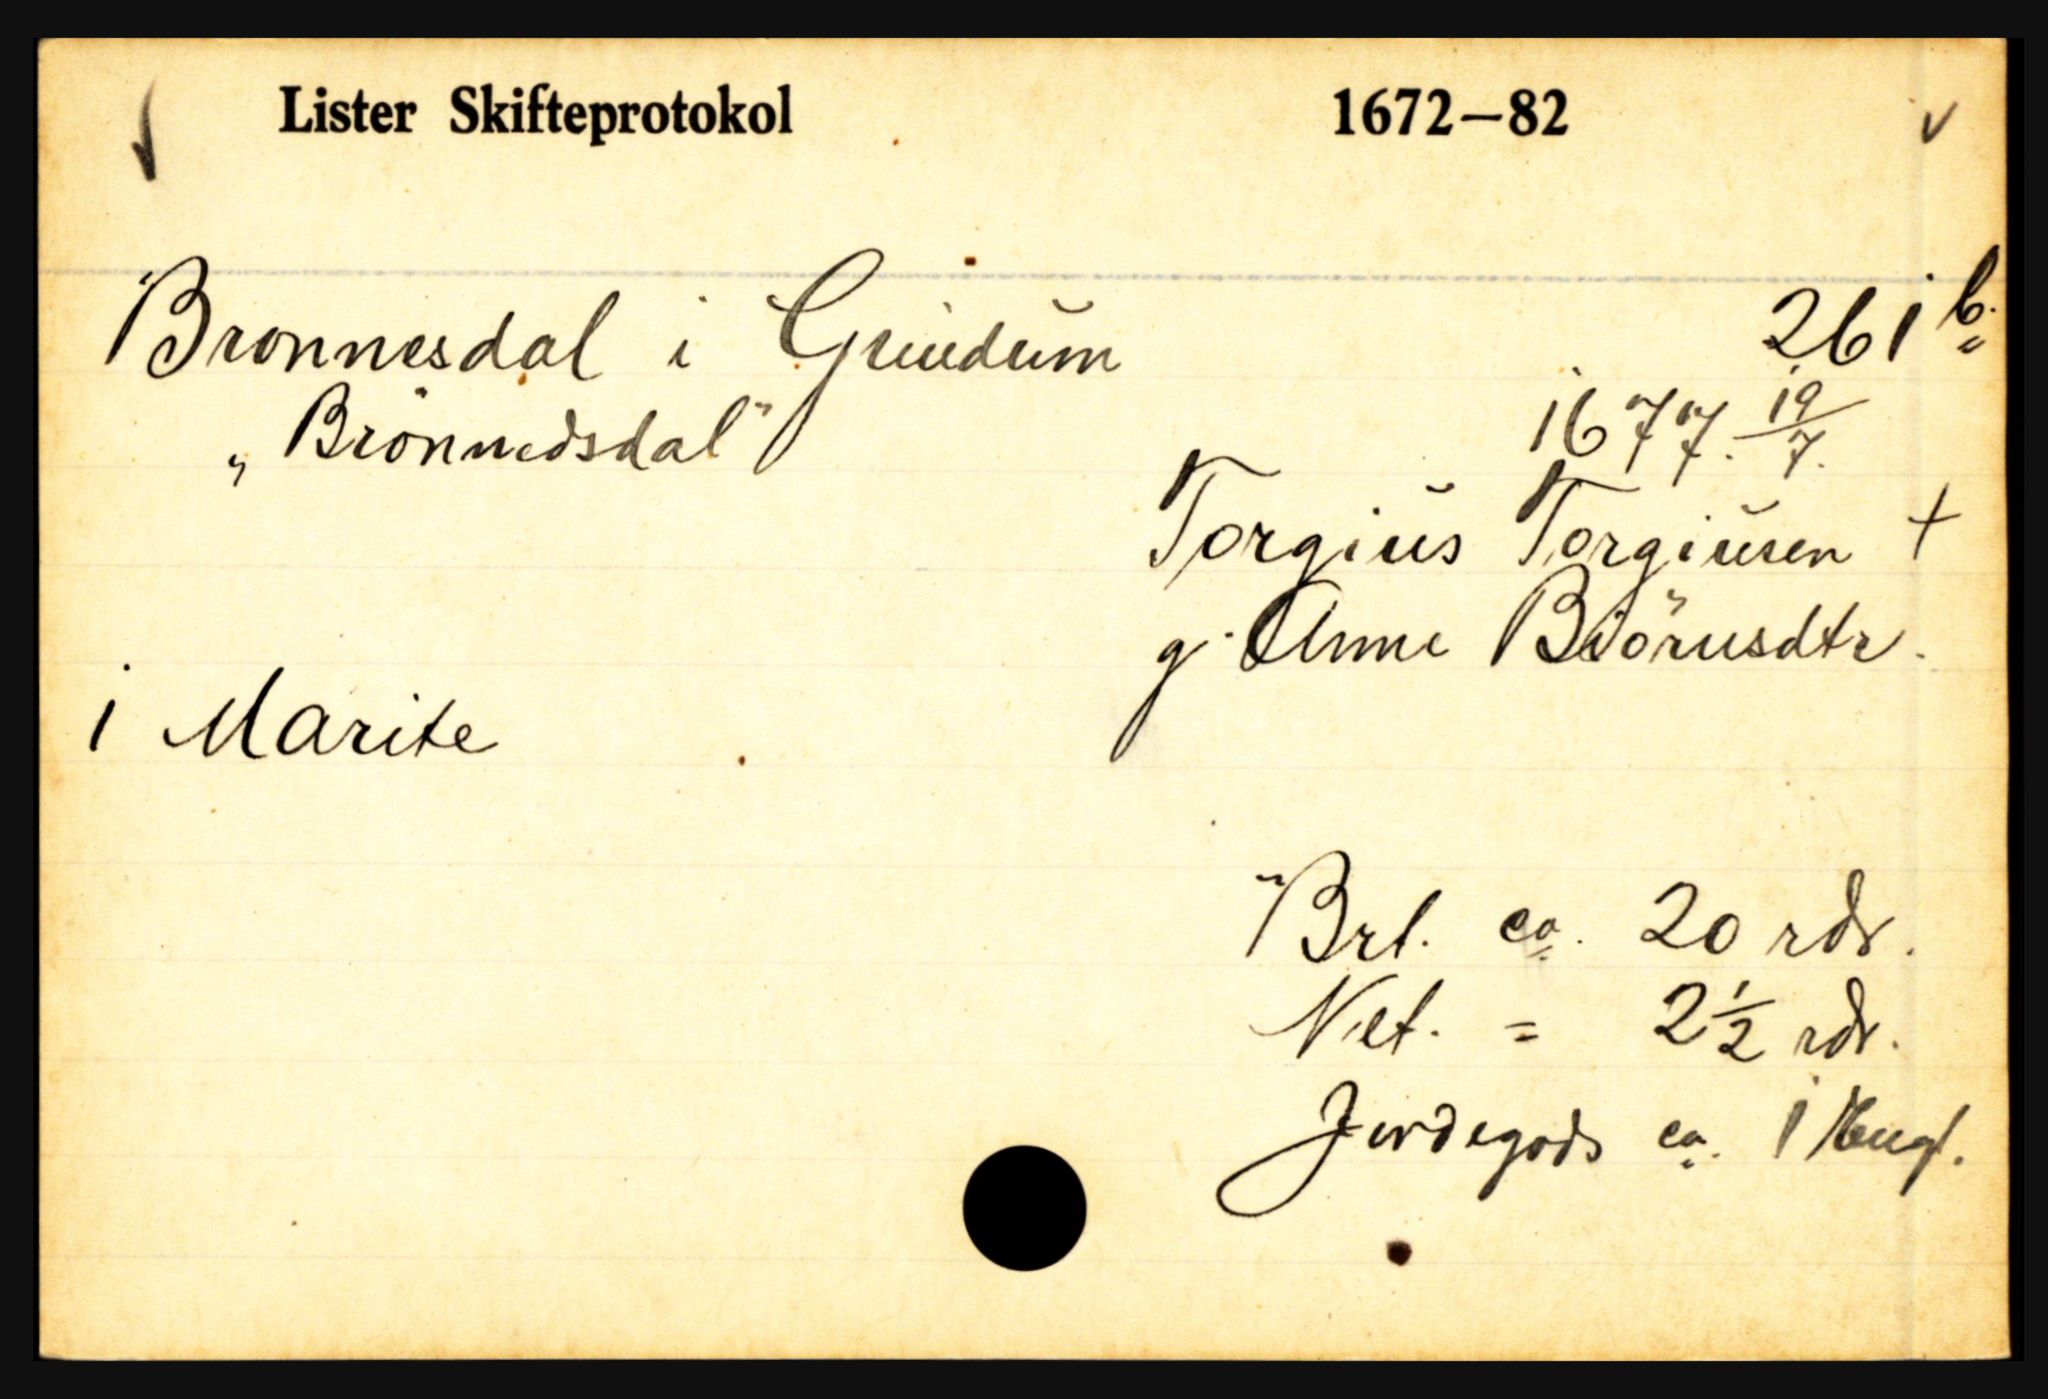 Lister Skifteprotokol 1672—82
Bronnesdal i Grindum 261 b.
„Brönnedsdal" 1677. 19/7.
Torgius Torgiusen +
g. Anne Biörnsdtr.
1 Marite
Brt. ca. 20 rdr.
Net. = 2 1/2 rdr.
Jordegods ca. 1 Hugf.